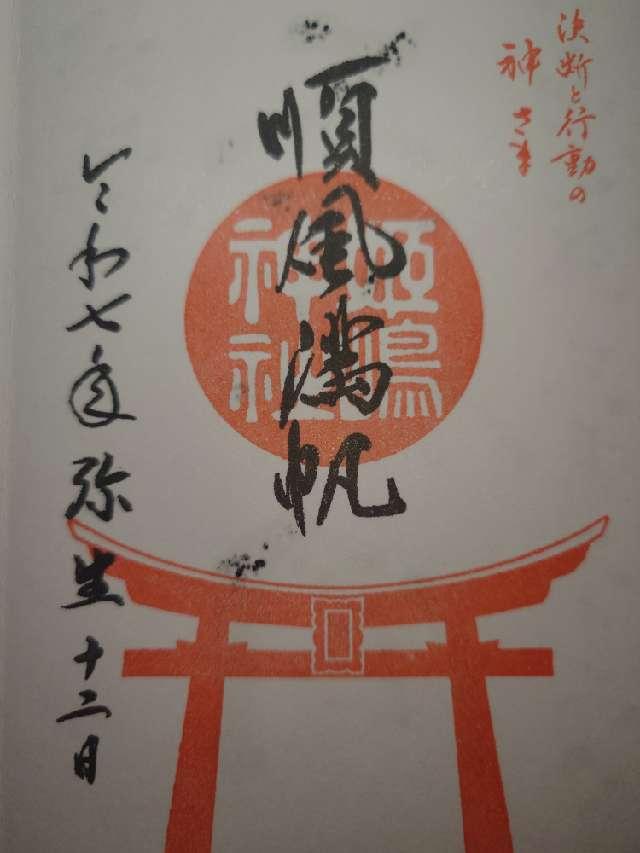 決断と行動の
神さま
順風満帆
姫嶋
神社
令和七年弥生十二日